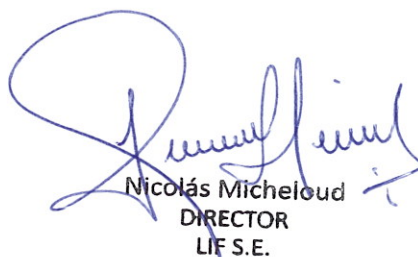 Nicolás Micheloud
DIRECTOR
LIF S.E.